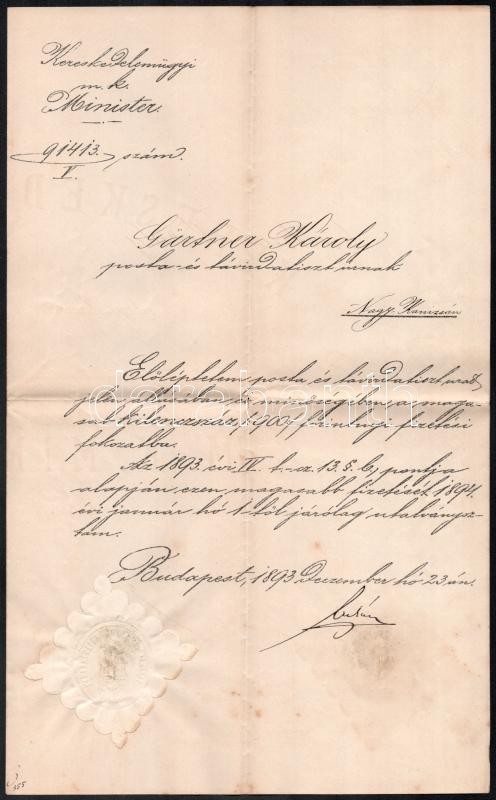 Kereskedelemügyi
m. k.
Minister.
91413. szám.
V.
Gärtner Károly
posta- és távirdatiszt urnak
Nagy-Kanizsán
Előléptetem posta és távirdatiszt urat
jelen állásában és minőségében, a maga-
sabb kilenczszáz /900/ forintnyi fizetési
fokozatba.
Az 1893. évi IV. t.-cz. 13. §. b, pontja
alapján ezen magasabb fizetését 1894.
évi január hó 1-től járólag utalványoz-
tam.
Budapest, 1893 Deczember hó 23-án.
darabanth